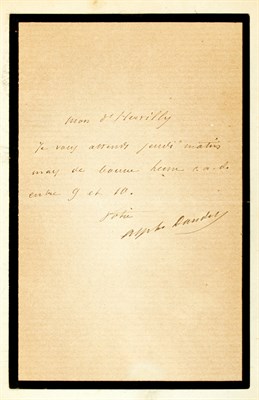 Mon d'Hervilly
Je vous attends jeudi matin
mais de bonne heure c.a.d.
entre 9 et 10.
Votre
Alph. Daudet